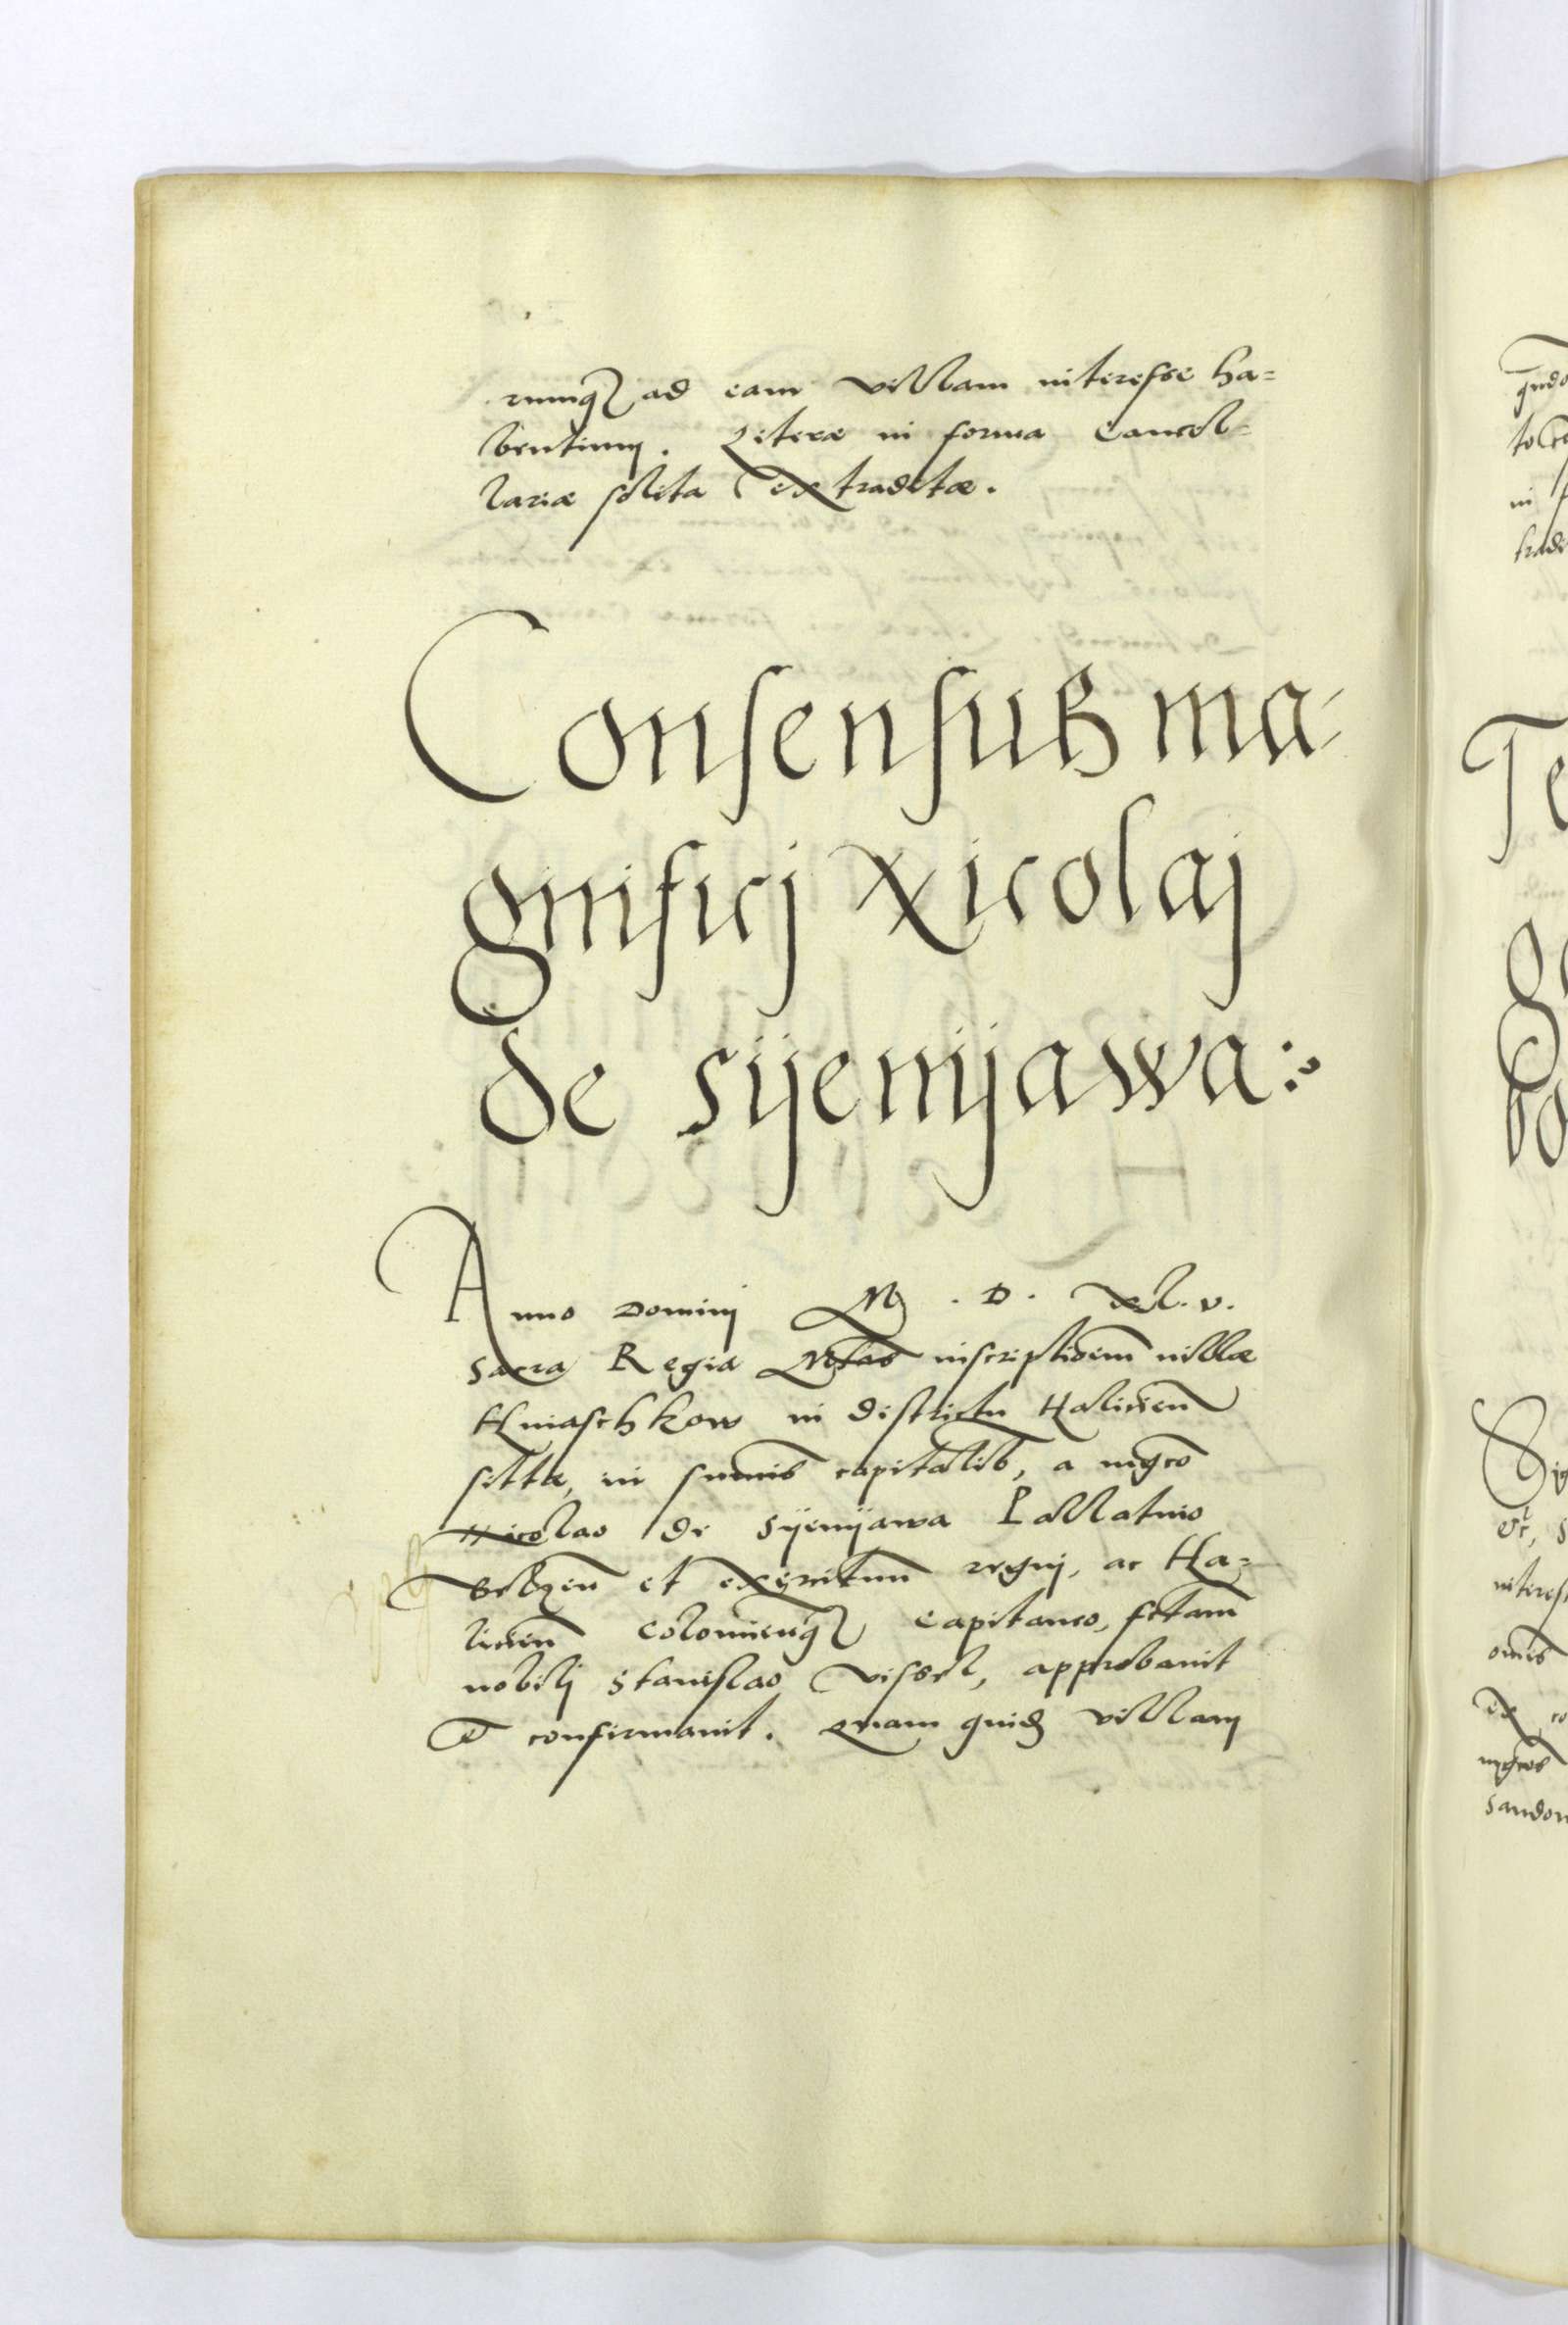 rumq₃ ad eam villam interesse ha=
bentium. Literæ in forma Cancel=
lariæ solita extraditæ.
Consensus ma=
gnificj Nicolaj
de sijenijawa:
Anno Dominj M. D. xl. v.
Sacra Regia Mtas inscriptioem villæ
Hniaschkow in districtu Halicieñ
sittæ, in summis capitalib, a mgco
Nicolao de Sijenijawa Pallatino
Belzeñ et exercituum regnj, ac Ha=
licieñ Colomieñq₃ Capitaneo, fctam
nobilj Stanislao Vissel, approbauit
et confirmauit. Quam quid villam